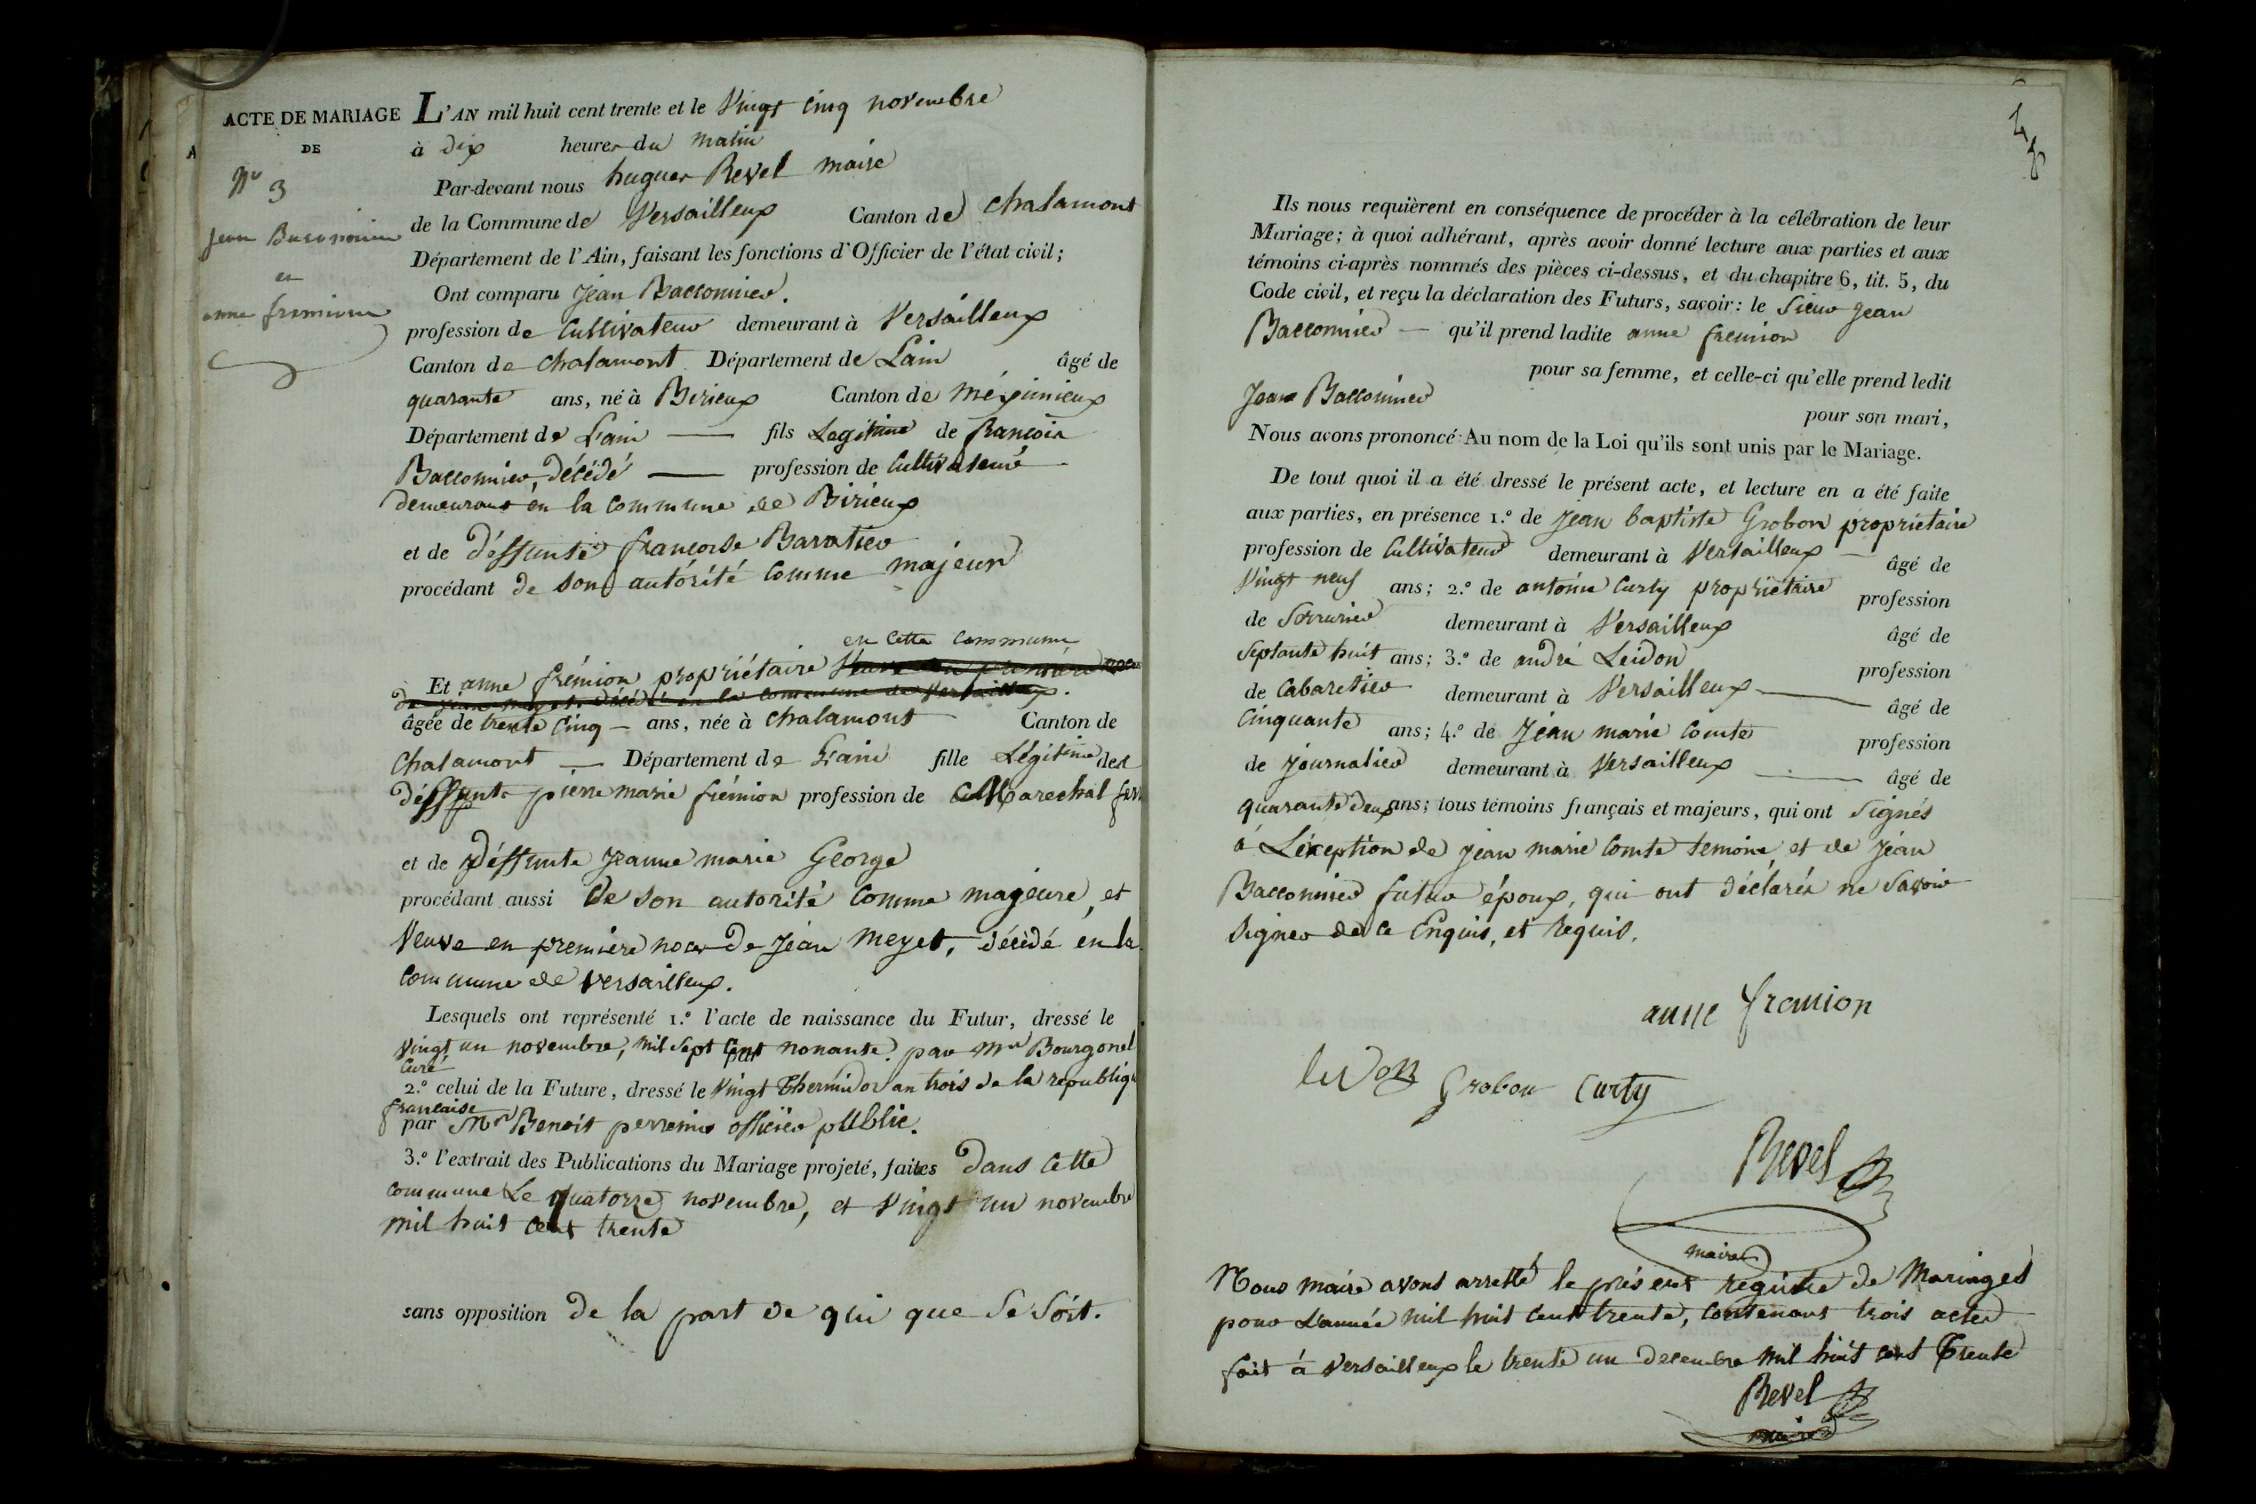 ACTE DE MARIAGE
DE
N° 3
jean Baconnier
et
anne fremion
L'AN mil huit cent trente et le Vingt cinq novembre
à dix heures du matin
Par-devant nous hugues Revel maire
de la Commune de Versailleux Canton de Chalamont
Département de l'Ain, faisant les fonctions d'Officier de l'état civil;
Ont comparu Jean Bacconnier.
profession de Cultivateur demeurant à Versailleux
Canton de Chalamont Département de Lain âgé de
quarante ans, né à Birieux Canton de méximieux
Département de Lain fils Legitime de francois
Bacconnier, décédé profession de Cultivateur
demeurant en la commune de Birieux
et de déffunte francoise Baratier
procédant de son autórité comme majeur
en cette commune
Et anne frémion propriétaire
âgée de trente cinq ans, née à Chalamont Canton de
Chalamont Département de Lain fille Légitime des
déffunts pierre marie frémion profession de Marechal
et de déffunte Jeanne marie George
procédant aussi de son autorité comme majeure, et
Veuve en premiere noces de Jean Meyet, décédé en la
commune de Versailleux.
Lesquels ont représenté 1.° l'acte de naissance du Futur, dressé le
vingt un novembre, mil sept cent nonante. par Mr Bourgonel
curé
2.° celui de la Future, dressé le Vingt Thermidor an trois de la republiq
francaise
par Mr Benoit perremin officier public.
3.° l'extrait des Publications du Mariage projeté, faites Dans cette
commune Le quatorze novembre, et Vingt un novembre
mil huit cent trente
sans opposition de la part de qui que se soit.
48
Ils nous requièrent en conséquence de procéder à la célébration de leur
Mariage; à quoi adhérant, après avoir donné lecture aux parties et aux
témoins ci-après nommés des pièces ci-dessus, et du chapitre 6, tit. 5, du
Code civil, et reçu la déclaration des Futurs, savoir: le Sieur Jean
Bacconnier qu'il prend ladite anne fremion
pour sa femme, et celle-ci qu'elle prend ledit
Jean Bacconnier
pour son mari,
Nous avons prononcé: Au nom de la Loi qu'ils sont unis par le Mariage.
De tout quoi il a été dressé le présent acte, et lecture en a été faite
aux parties, en présence 1.° de Jean baptiste Grobon propriétaire
profession de Cultivateur demeurant à Versailleux âgé de
Vingt neuf ans; 2.° de antoine Curty propriétaire profession
de Serrurier demeurant à Versailleux âgé de
Septante huit ans; 3.° de andré Leidon profession
de Cabaretier demeurant à Versailleux âgé de
Cinquante ans; 4.° de Jean marie Comte profession
de Journalier demeurant à Versailleux âgé de
quarante deux ans; tous témoins français et majeurs, qui ont Signés
à Léxeption de jean marie Comte temoin, et de Jean
Bacconnier futur époux, qui ont déclarés ne savoir
signer de ce Enquis, et requis.
anne fremion
ledon Grobon Curty
Revel
maire
Nous maire avons arretté le présent registre de Mariages
pour L'année mil huit cent trente, contenant trois actes
fait à Versailleux le trente un decembre mil huit cent Trente
Revel
maire